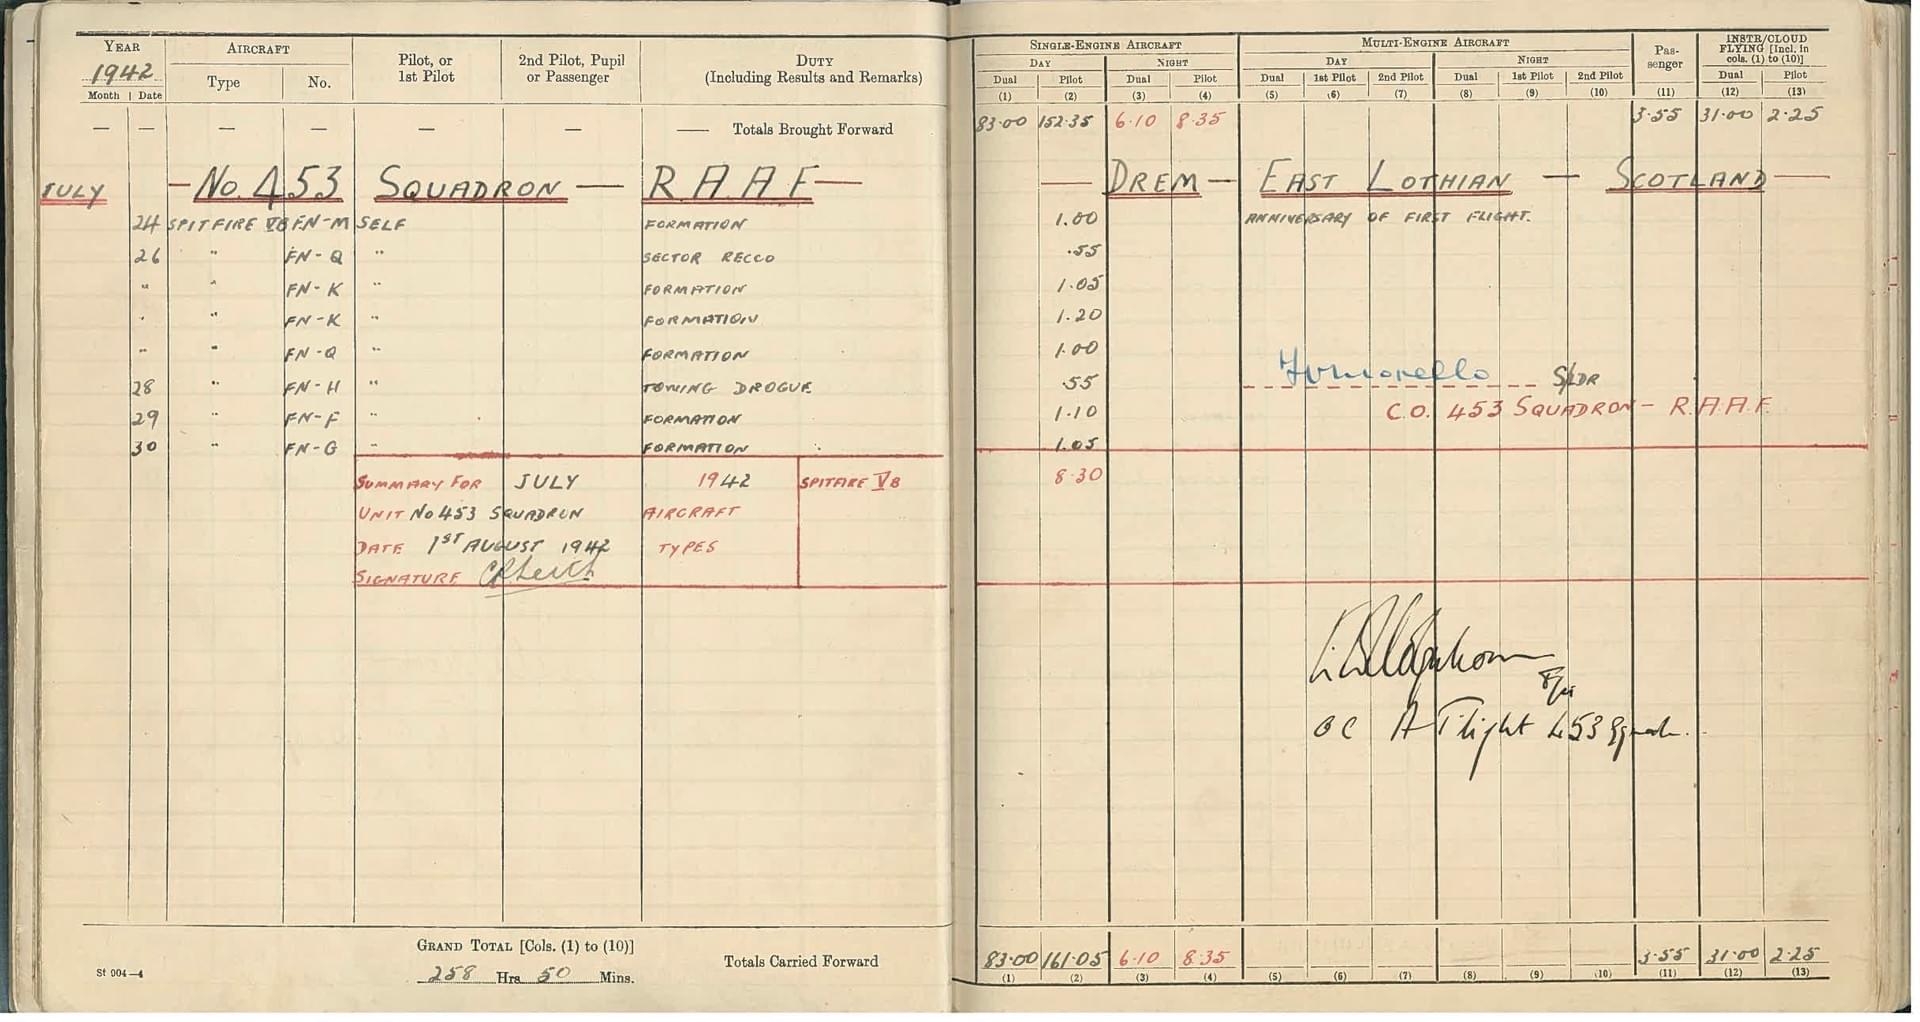 YEAR AIRCRAFT Pilot, or 1st Pilot 2nd Pilot, Pupil or Passenger DUTY (Including Results and Remarks)
1942 Type No.
Month Date
— — — — — — —— Totals Brought Forward
JULY — No. 453 SQUADRON — R A A F —
24 SPITFIRE VB FN-M SELF FORMATION
26 " FN-Q " SECTOR RECCO
" " FN-K " FORMATION
" " FN-K " FORMATION
" " FN-Q " FORMATION
28 " FN-H " TOWING DROGUE
29 " FN-F " FORMATION
30 " FN-G " FORMATION
SUMMARY FOR JULY 1942 SPITFIRE VB
UNIT No 453 SQUADRON AIRCRAFT
DATE 1ST AUGUST 1942 TYPES
SIGNATURE
GRAND TOTAL [Cols. (1) to (10)]
258 Hrs. 50 Mins.
Totals Carried Forward
St 904—4
SINGLE-ENGINE AIRCRAFT MULTI-ENGINE AIRCRAFT Pas-senger INSTR/CLOUD FLYING [Incl. in cols. (1) to (10)]
DAY NIGHT DAY NIGHT
Dual Pilot Dual Pilot Dual 1st Pilot 2nd Pilot Dual 1st Pilot 2nd Pilot Dual Pilot
(1) (2) (3) (4) (5) (6) (7) (8) (9) (10) (11) (12) (13)
83.00 152.35 6.10 8.35 3.55 31.00 2.25
— DREM — EAST LOTHIAN — SCOTLAND —
1.00 ANNIVERSARY OF FIRST FLIGHT.
.55
1.05
1.20
1.00
.55 S/LDR
1.10 C.O. 453 SQUADRON — R.A.A.F.
1.05
8.30
OC A Flight 453
83.00 161.05 6.10 8.35 3.55 31.00 2.25
(1) (2) (3) (4) (5) (6) (7) (8) (9) (10) (11) (12) (13)